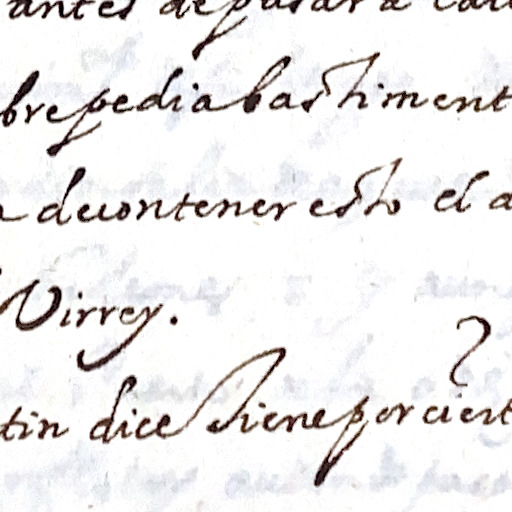 antes depasar a cal
brepediabastiment
a decontener esto el a
Virrey.
tin dice tieneporciert